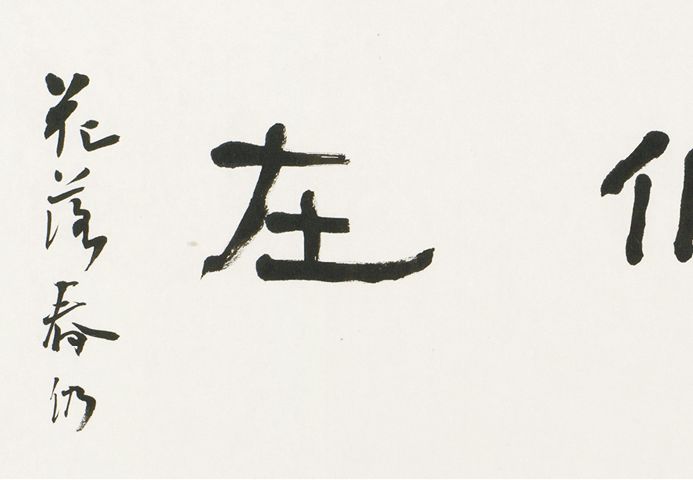 在
花落春仍